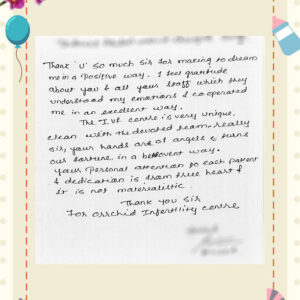 Thank 'U' so much Sir for making to dream
me in a positive way. I feel gratitude
about you & all your staff which they
understood my emotions & co operated
me in an excellent way.
The I.V.F centre is very unique,
clean with the devoted team. really
sir, your hands are of angels & trans
our fortune in a way.
your Personal attention to each patient
& dedication is from true heart &
it is not materialistic.
Thank you Sir
For Orrchid Infertility centre